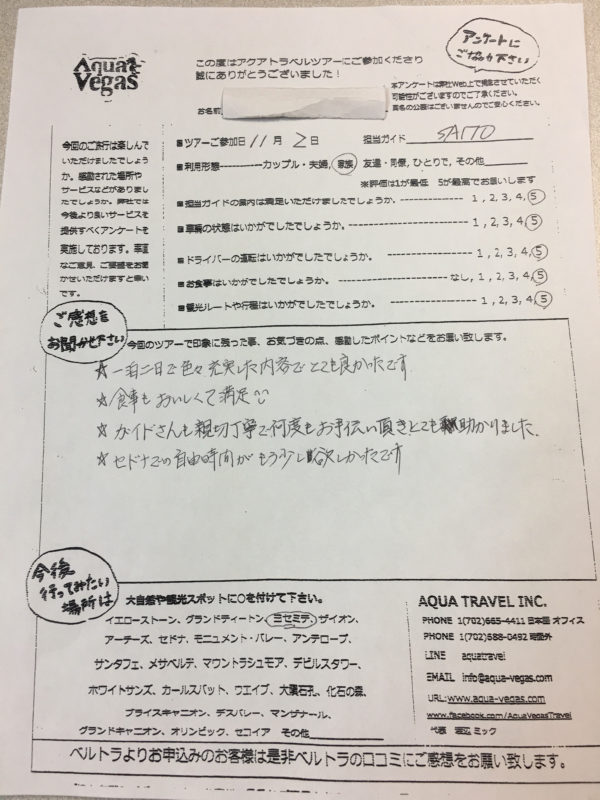 Aqua
Vegas
この度はアクアトラベルツアーにご参加くださり
誠にありがとうございました！
アンケートに
ご協力下さい
本アンケートは弊社Web上で掲載させていただく
可能性がございますのでご了承ください。
実名の公表はございませんのでご安心ください。
お名前
今回のご旅行は楽しんで
いただけましたでしょう
か。感動された場所や
サービスなどがありまし
たでしょうか。弊社では
今後より良いサービスを
提供すべくアンケートを
実施しております。率直
なご意見、ご要望をお聞
かせいただけますと幸い
です。
■ツアーご参加日 11月 2日 担当ガイド SAITO
■利用形態----------カップル・夫婦, 家族 友達・同僚, ひとりで, その他
※評価は1が最低 5が最高でお願いします
■担当ガイドの案内は満足いただけましたでしょうか。 ---------- 1, 2, 3, 4, 5
■車輌の状態はいかがでしたでしょうか。 ---------- 1, 2, 3, 4, 5
■ドライバーの運転はいかがでしたでしょうか。 ---------- 1, 2, 3, 4, 5
■お食事はいかがでしたでしょうか。 ---------- なし, 1, 2, 3, 4, 5
■観光ルートや行程はいかがでしたでしょうか。 ---------- 1, 2, 3, 4, 5
ご感想を
お聞かせ下さい
今回のツアーで印象に残った事、お気づきの点、感動したポイントなどをお願い致します。
☆一泊二日で色々充実した内容でとても良かったです
☆食事もおいしくて満足
☆ガイドさんも親切丁寧で何度もお手伝い頂きとても助かりました.
☆セドナでの自由時間がもう少し欲しかったです
今後
行ってみたい
場所は
大自然や観光スポットに○を付けて下さい。
イエローストーン、グランドティートン、ヨセミテ、ザイオン、
アーチーズ、セドナ、モニュメント・バレー、アンテロープ、
サンタフェ、メサベルデ、マウントラシュモア、デビルスタワー、
ホワイトサンズ、カールスバット、ウエイブ、大隕石孔、化石の森、
ブライスキャニオン、デスバレー、マンザナール、
グランドキャニオン、オリンピック、セコイア その他
AQUA TRAVEL INC.
PHONE 1(702)665-4411 日本語 オフィス
PHONE 1(702)588-0492 時間外
LINE aquatravel
EMAIL info@aqua-vegas.com
URL:www.aqua-vegas.com
www.facebook.com/AquaVegasTravel
代表 渡辺 ミック
ベルトラよりお申込みのお客様は是非ベルトラの口コミにご感想をお願い致します。